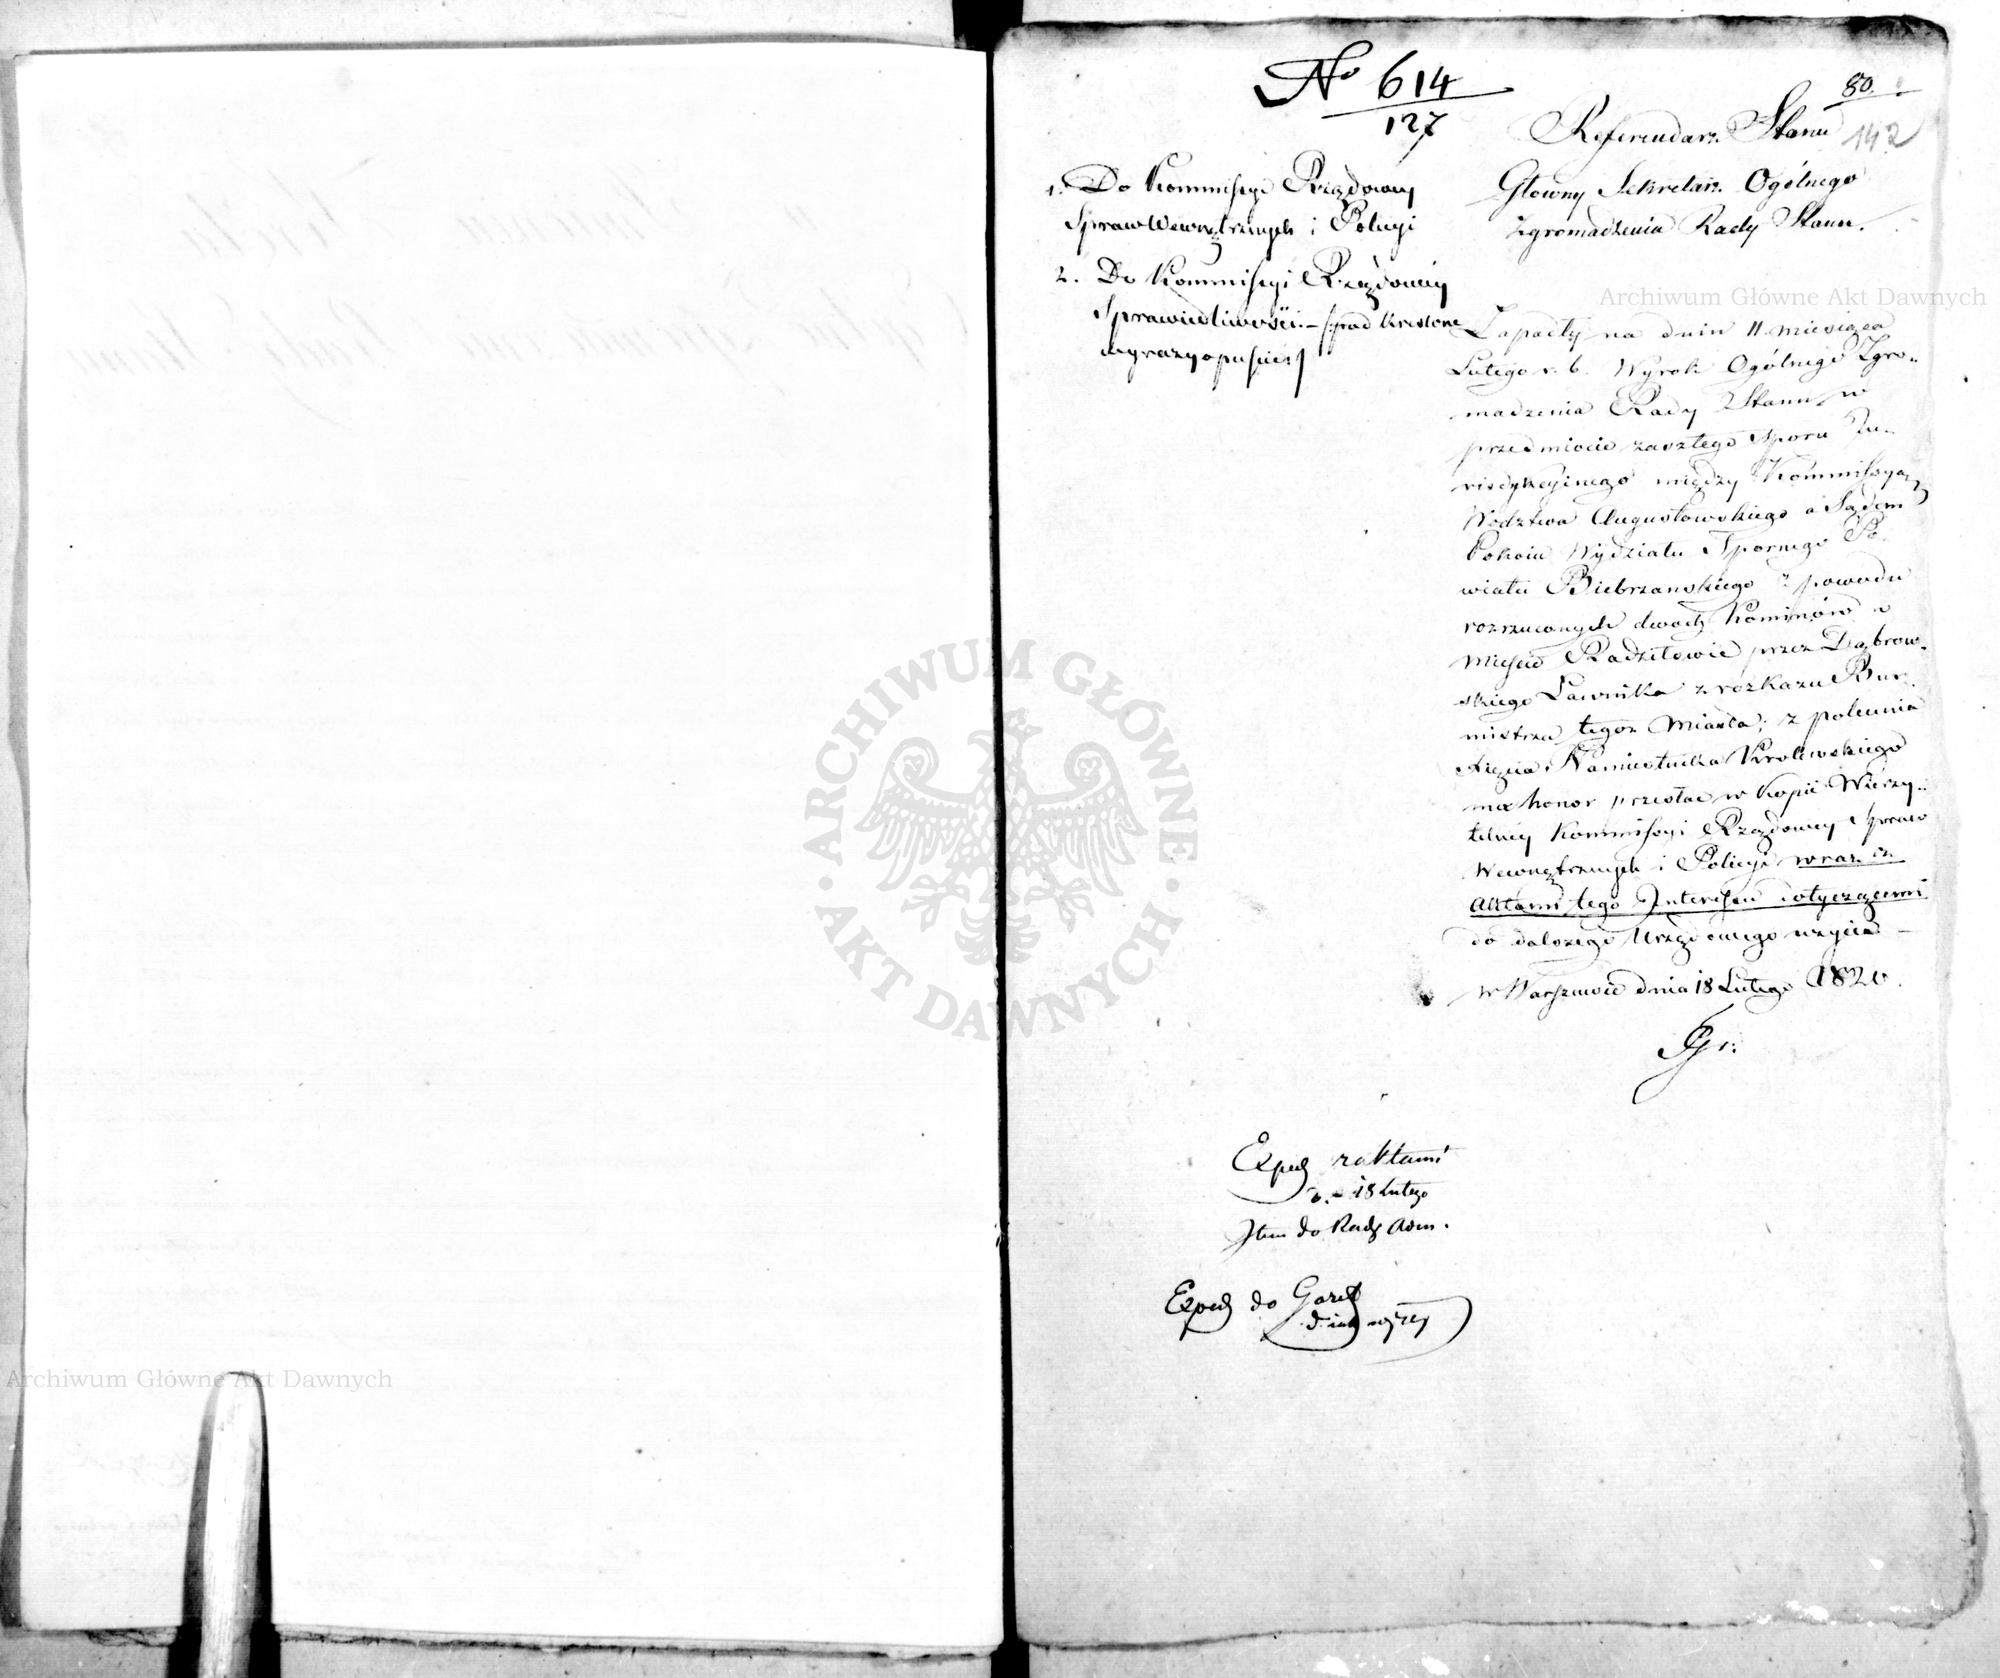 No 614
127
80.
142
1. Do Kommissyi Rządowey
Spraw Wewnętrznych i Policyi
2. Do Kommissyi Rządowey
Sprawiedliwości. – /: pod kreslone
wyrazy opuścić /
Referendarz Stanu
Głowny Sekretarz Ogólnego
Zgromadzenia Rady Stanu.
Zapadły na dniu 11. miesiąca
Lutego r. b. Wyrok Ogólnego Zgro-
madzenia Rady Stanu w
przedmiocie zaszłego Sporu Ju-
risdykcyinego między Kommissyą
Wodztwa Augustowskiego a Sądem
Pokoiu Wydziału Spornego Po-
wiatu Biebrzanskiego z powodu
rozrzuconych dwoch Kominów w
Mieście Radziłowie przez Dąbrow-
skiego Ławnika z rozkazu Bur-
mistrza tegoz Miasta; z polecenia
Xięcia Namiestnika Krolewskiego
ma honor przesłać w Kopii Wierzy-
telney Kommissyi Rządowey Spraw
Wewnętrznych i Policyi wraz z
Aktami tego Interessu dotyczącemi
do dalszego Urzędowego użycia –
w Warszawie dnia 18 Lutego 1820.
Exped z aktami
d. 18 Lutego
Item do Rady Adm.
Exped do Gazet